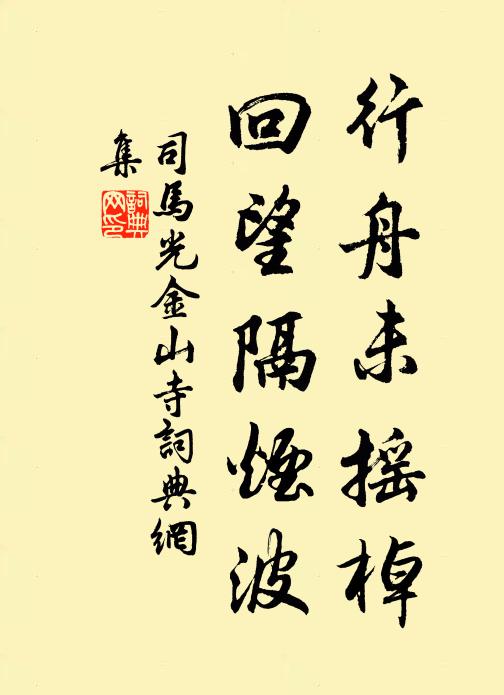 行舟未摇棹
回望隔煙波
司馬光金山寺詞典網
集
詞典網印